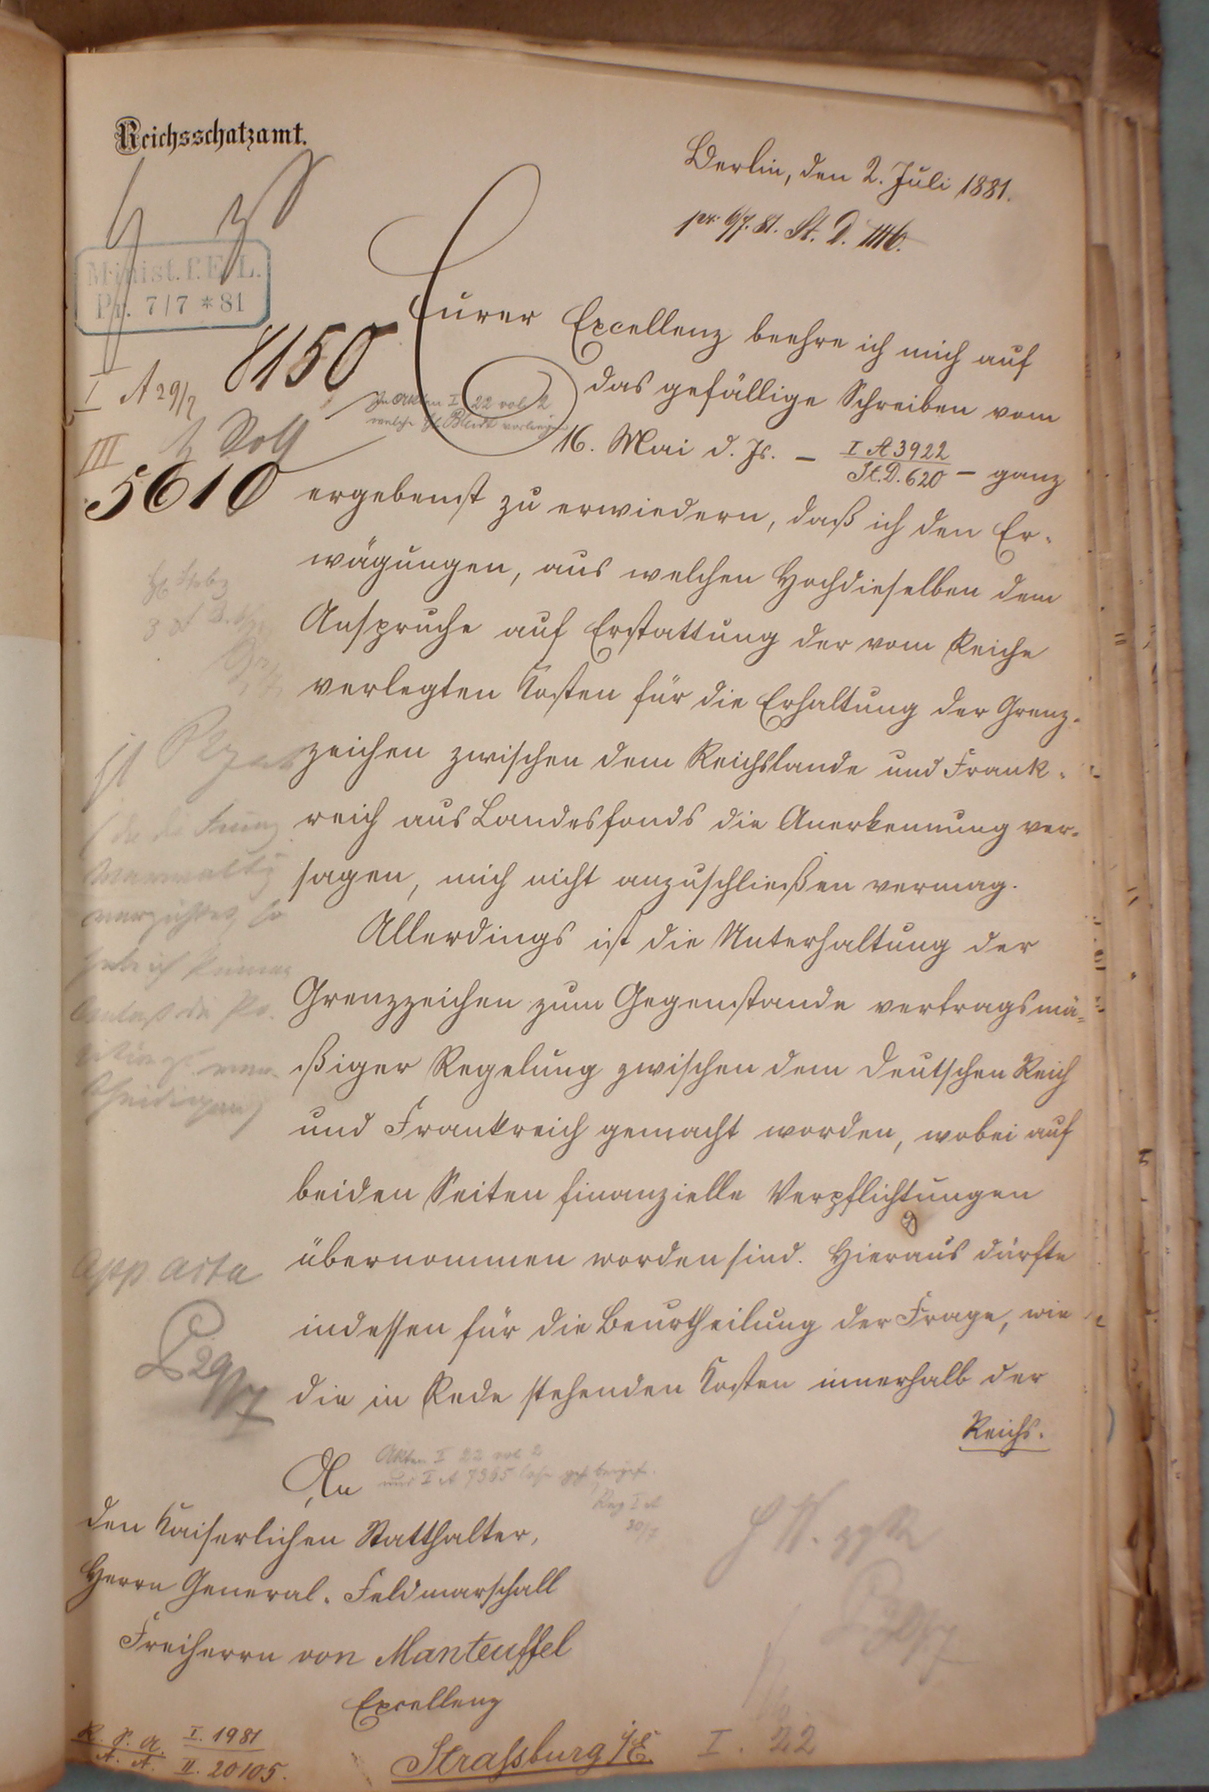 Reichsschatzamt.
Berlin, den 2. Juli 1881.
pr. 6/7. 81. St. D. 1116.
Minist. f. E. L.
Pr. 7/7 * 81
8150
I A 29/7
III
5610
In Akten I 22 vol 2
welche
vorliegen
Eurer Excellenz beehre ich mich auf
das gefällige Schreiben vom
16. Mai d. Js. – I A 3922 / St. D. 620 – ganz
ergebenst zu erwiedern, daß ich den Er-
wägungen, aus welchen Hochdieselben dem
Anspruche auf Erstattung der vom Reiche
verlegten Kosten für die Erhaltung der Grenz-
zeichen zwischen dem Reichslande und Frank-
reich aus Landesfonds die Anerkennung ver-
sagen, mich nicht anzuschließen vermag.
Allerdings ist die Unterhaltung der
Grenzzeichen zum Gegenstande vertragsmä-
ßiger Regelung zwischen dem Deutschen Reich
und Frankreich gemacht worden, wobei auf
beiden Seiten finanzielle Verpflichtungen
übernommen worden sind. Hieraus dürfte
indessen für die Beurtheilung der Frage, wie
die in Rede stehenden Kosten innerhalb der
Reichs-
app acta
29/7
Akten I 22 vol 2
und I A 7365
Reg I A
30/7
An
den Kaiserlichen Statthalter,
Herrn General-Feldmarschall
Freiherrn von Manteuffel
Excellenz
Straßburg i/E.
I. 22
R. S. A. I. 1981
A. A. II. 20105.